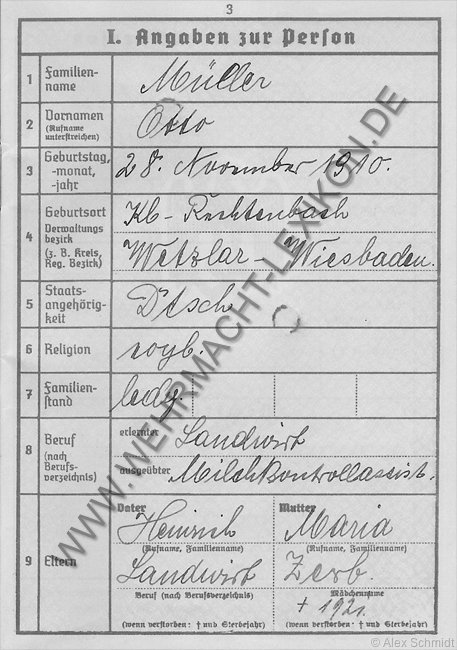 3
I. Angaben zur Person
1 Familien-
name
Müller
2 Vornamen
(Rufname
unterstreichen)
Otto
3 Geburtstag,
-monat,
-jahr
28. November 1910.
4 Geburtsort
Verwaltungs
bezirk
(z. B. Kreis,
Reg. Bezirk)
Kl-Rechtenbach
Wetzlar - Wiesbaden.
5 Staats-
angehörig-
keit
Dtsch
6 Religion
7 Familien-
stand
ledg.
8 Beruf
(nach
Berufs-
verzeichnis)
erlernter Landwirt
ausgeübter Milchkontrollassist.
9 Eltern
Vater Mutter
Heinrich Maria
(Rufname, Familienname) (Rufname, Familienname)
Landwirt Zerb.
Beruf (nach Berufsverzeichnis) Mädchenname
† 1921.
(wenn verstorben: † und Sterbejahr) (wenn verstorben: † und Sterbejahr)
WWW.WEHRMACHT-LEXIKON.DE
© Alex Schmidt